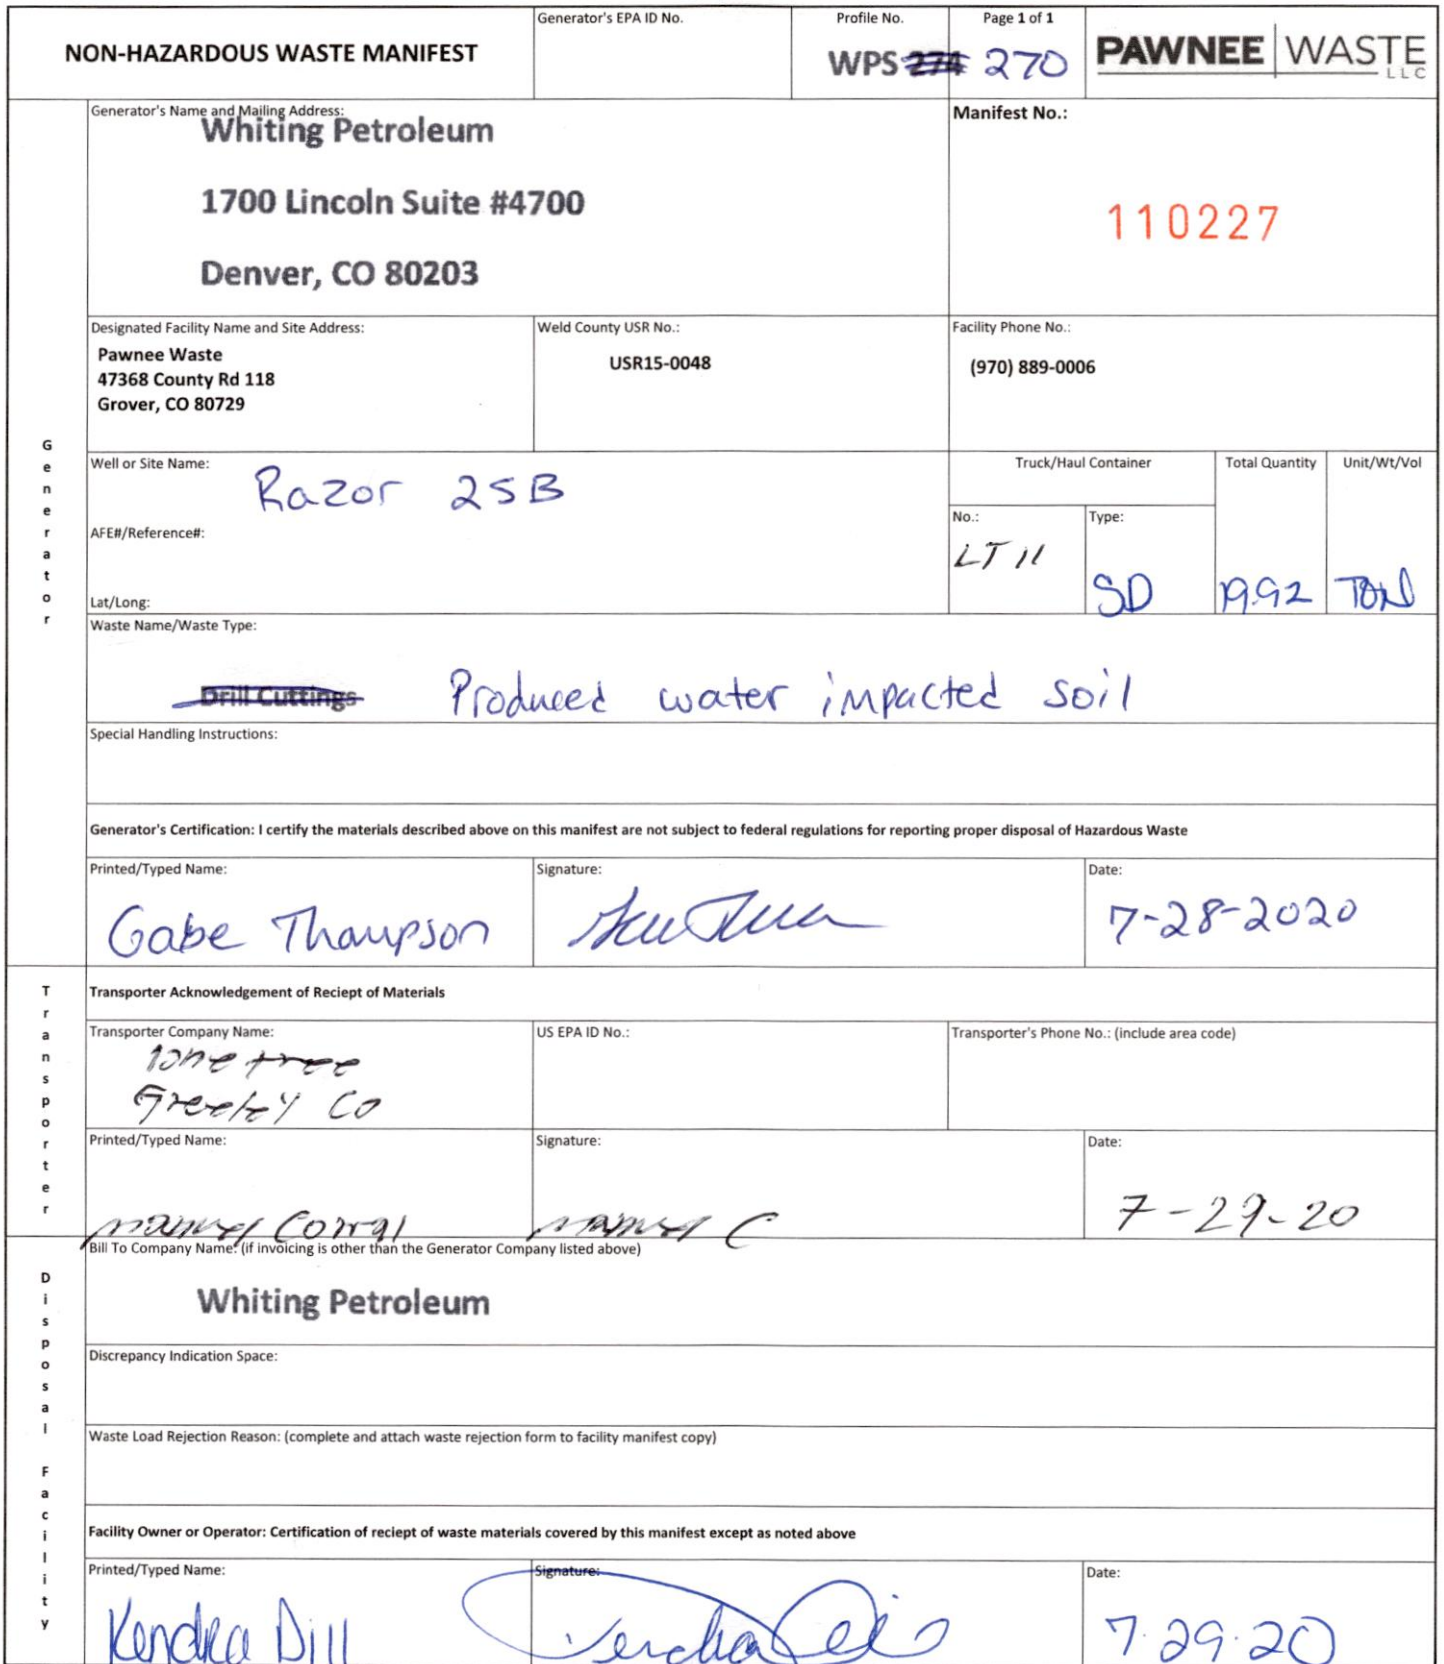 NON-HAZARDOUS WASTE MANIFEST
Generator's EPA ID No.
Profile No.
WPS 274 270
Page 1 of 1
PAWNEE WASTE
LLC
Generator
Generator's Name and Mailing Address:
Whiting Petroleum
1700 Lincoln Suite #4700
Denver, CO 80203
Manifest No.:
110227
Designated Facility Name and Site Address:
Pawnee Waste
47368 County Rd 118
Grover, CO 80729
Weld County USR No.:
USR15-0048
Facility Phone No.:
(970) 889-0006
Well or Site Name: Razor 25B
AFE#/Reference#:
Lat/Long:
Truck/Haul Container
No.:
LT 11
Type:
SD
Total Quantity
19.92
Unit/Wt/Vol
TON
Waste Name/Waste Type:
Drill Cuttings Produced water impacted soil
Special Handling Instructions:
Generator's Certification: I certify the materials described above on this manifest are not subject to federal regulations for reporting proper disposal of Hazardous Waste
Printed/Typed Name:
Gabe Thompson
Signature:
Date:
7-28-2020
Transporter
Transporter Acknowledgement of Reciept of Materials
Transporter Company Name:
lone tree
Greeley Co
US EPA ID No.:
Transporter's Phone No.: (include area code)
Printed/Typed Name:
manuel Corral
Signature:
manuel C
Date:
7-29-20
Disposal Facility
Bill To Company Name: (if invoicing is other than the Generator Company listed above)
Whiting Petroleum
Discrepancy Indication Space:
Waste Load Rejection Reason: (complete and attach waste rejection form to facility manifest copy)
Facility Owner or Operator: Certification of reciept of waste materials covered by this manifest except as noted above
Printed/Typed Name:
Kendra Dill
Signature:
Date:
7.29.20